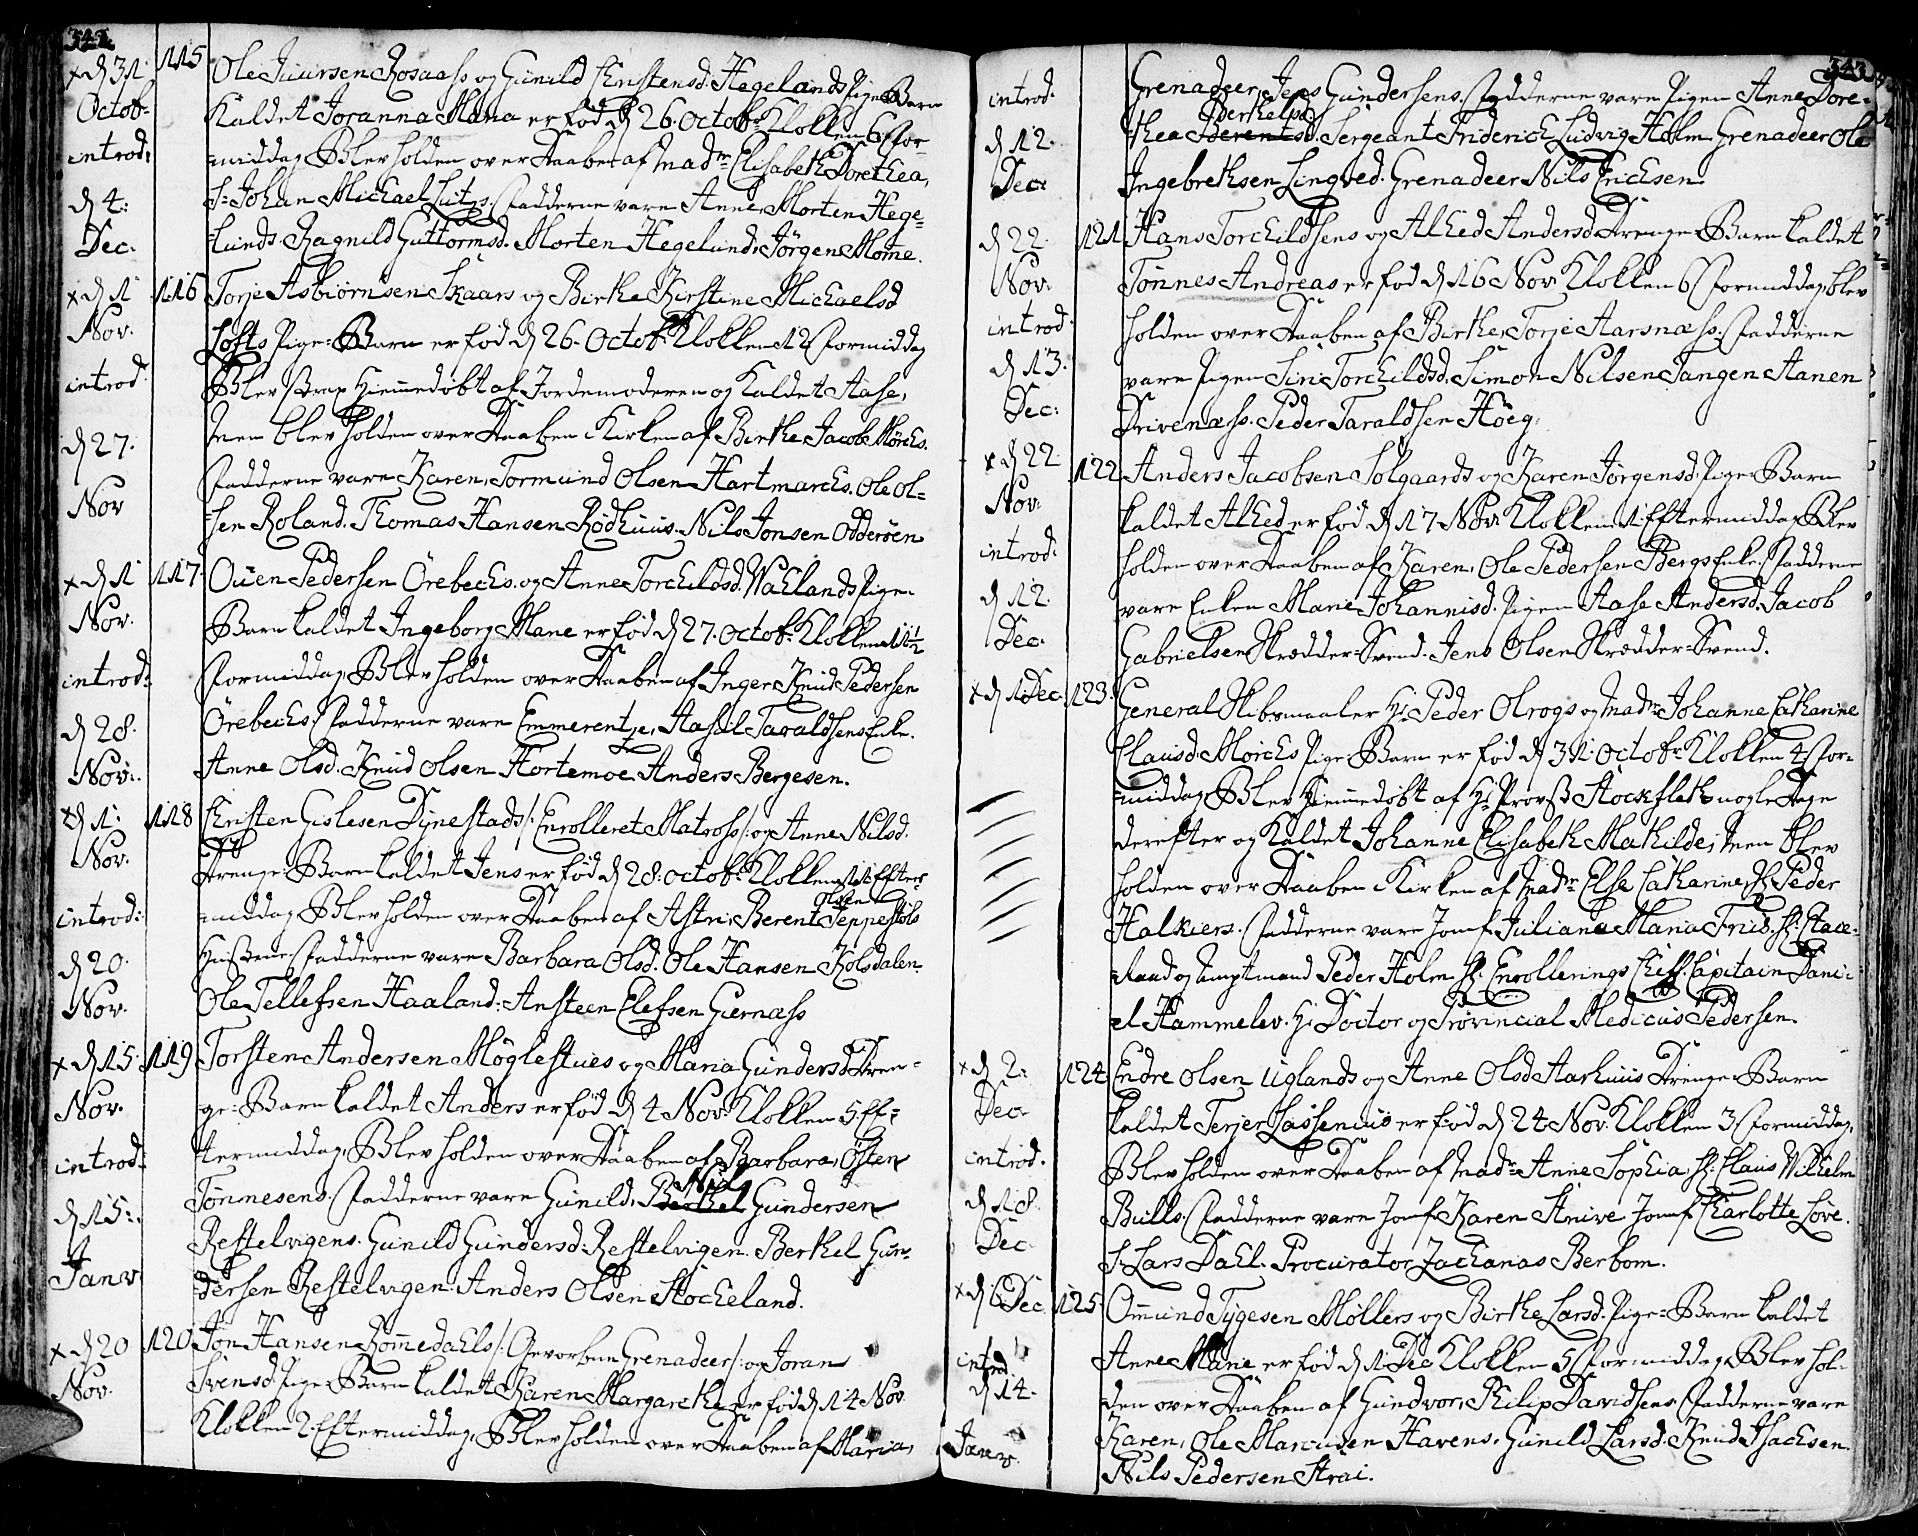 342.
x d 31 Octob: introd: d 4: Dec.
115 Ole Juursen Rosaass og Gunild Christensd. Hegelands Pige-Barn
kaldet Joranna Maria er fød d 26. Octobr Klokken 6 for-
middag. Blev holden over Daaben af Madme Elisabeth Dorethea,
Sr Johan Michael Luitzs. Fadderne vare Anne, Morten Hege-
lunds. Ragnild Guttormsd. Morten Hegelund. Jørgen Mome.
x d 1 Nov. introd: d 27. Nov
116 Torje Asbiørnsen Skaars og Birthe Kirstine Michaelsd
Lofts Pige-Barn er fød d 26. Octobr Klokken 12 Formiddag
Blev strax Hiemmedøbt af Jordemoderen og kaldet Aase,
men blev holden over Daaben i Kirken af Birthe Jacob Mörchs.
Fadderne vare Karen, Tormund Olsen Hartmarchs. Ole Ol-
sen Roland. Thomas Hansen Rødhuus. Nils Jonsen Odderöen
x d 1 Nov. introd: d 28. Nov:
117. Ouen Pedersen Örebechs. og Anne Torchildsd. Wallands Pige-
Barn kaldet Ingeborg Marie er fød d 27. Octobr. Klokken 11 1/2
Formiddag, Blev holden over Daaben af Inger, Knud Pedersen
Örebechs. Fadderne vare Emmerentze, Aasul Taraldsens Enke.
Anne Olsd. Knud Olsen Hortemoe. Anders Bergesen.
x d 1: Nov. introd: d 20. Nov.
118 Christen Gislesen Dynestads /: Enrolleret Matross :/ og Anne Nilsd.
Drenge-Barn kaldet Jens er fød d 28. Octobr. Klokken 11 Efter-
middag, Blev holden over Daaben af Astri, Berent Olsen Jeppestöls
Hustrue. Fadderne vare Barbara Olsd. Ole Hansen Kolsdalen.
Ole Tellefsen Haaland. Ansteen Elefsen Giernæss
x d 15 Nov. introd: d 15: Janv.
119 Torsten Andersen Møglestues og Maria Gundersd Dren-
ge-Barn kaldet Anders er fød d 4 Nov. Klokken 5. Ef-
termiddag, Blev holden over Daaben af Barbara, Østen
Tønnesens. Fadderne vare Gunild, Nils Gundersen
Restelvigens. Gunild Gundersd. Restelvigen. Berthel Gun-
dersen Restelvigen. Anders Olsen Stocheland.
x d 20 Nov.
120 Jon Hansen Rommedahls /: Gevorben Grenadeer :/ og Joran
Svensd. Pige-Barn kaldet Karen Margarethe er fød d 14 Nov.
Klokken 2. Eftermiddag, Blev holden over Daaben af Maria,
343.
introd. d 12. Dec:
Grenadeer Jens Gundersens. Fadderne vare Pigen Anne Dore-
thea Berthelsd. Sergeant Friderich Ludvig Holm. Grenadeer Ole
Ingebrethsen Lingved. Grenadeer Nils Erichsen.
d 22. Nov. introd: d 13. Dec:
121 Hans Torchildsens og Alhed Andersd. Drenge-Barn kaldet
Tønnes Andreas er fød d 16 Nov. Klokken 6 Formiddag, blev
holden over Daaben af Birthe, Torje Aarsnæss. Fadderne
vare Pigen Siri Torchildsd. Simon Nilsen Tangen. Aanen
Drivenæss. Peder Taraldsen Høeg.
x d 22. Nov: introd: d 12. Dec.
122 Anders Jacobsen Solgaards og Karen Jørgensd. Pige-Barn
kaldet Alhed er fød d 17 Novr Klokken 1 Eftermiddag, Blev
holden over Daaben af Karen, Ole Pedersen Bergs Enke. Fadderne
vare Enken Marie Johannisd. Pigen Aase Andersd. Jacob
Gabrielsen Skrædder-Svend. Jens Olsen Skrædder-Svend.
x d 1 Dec.
123. General Skibsmaaler Hr Peder Olrogs og Madme Johanne Catharine
Clausd. Moichs Pige-Barn er fød d 31. Octobr Klokken 4 For-
middag, Blev Hiemmedøbt af Hr Provst Stockfleth nogle Dage
derefter og kaldet Johanne Elisabeth Mathilde, men blev
holden over Daaben i Kirken af Madme Else Catharine, Hr Peder
Halkiers. Fadderne vare Jomf. Juliana Maria Friis. Hr. Etats-
Raad og Amptmand Peder Holm. Hr. Enrollerings Chiff. Capitain Dani-
el Hammelev. Hr Doctor og Provincial Medicus Pedersen.
x d 2: Dec. introd. d 18. Dec.
124 Endre Olsen Uglands og Anne Olsd Aarhuus Drenge-Barn
kaldet Terjer Lassenius er fød d 24 Nov. Klokken 3 Formiddag,
Blev holden over Daaben af Madme Anne Sophia, Hr. Claus Wilhelm
Bulls. Fadderne vare Jomf. Karen Strive. Jomf. Charlotte Love.
Sr Lars Dahl. Procurator Zacharias Berbom.
x d 6 Dec. introd d 14. Janv.
125. Ommund Tygesen Møllers og Birthe Larsd. Pige-Barn kaldet
Anne Marie er fød d 1 Dec Klokken 5 Formiddag, Blev hol-
den over Daaben af Gundvor, Philip Davidsens. Fadderne vare
Karen, Ole Marcusen Havens. Gunild Larsd. Knud Isachsen.
Nils Pedersen Strai.